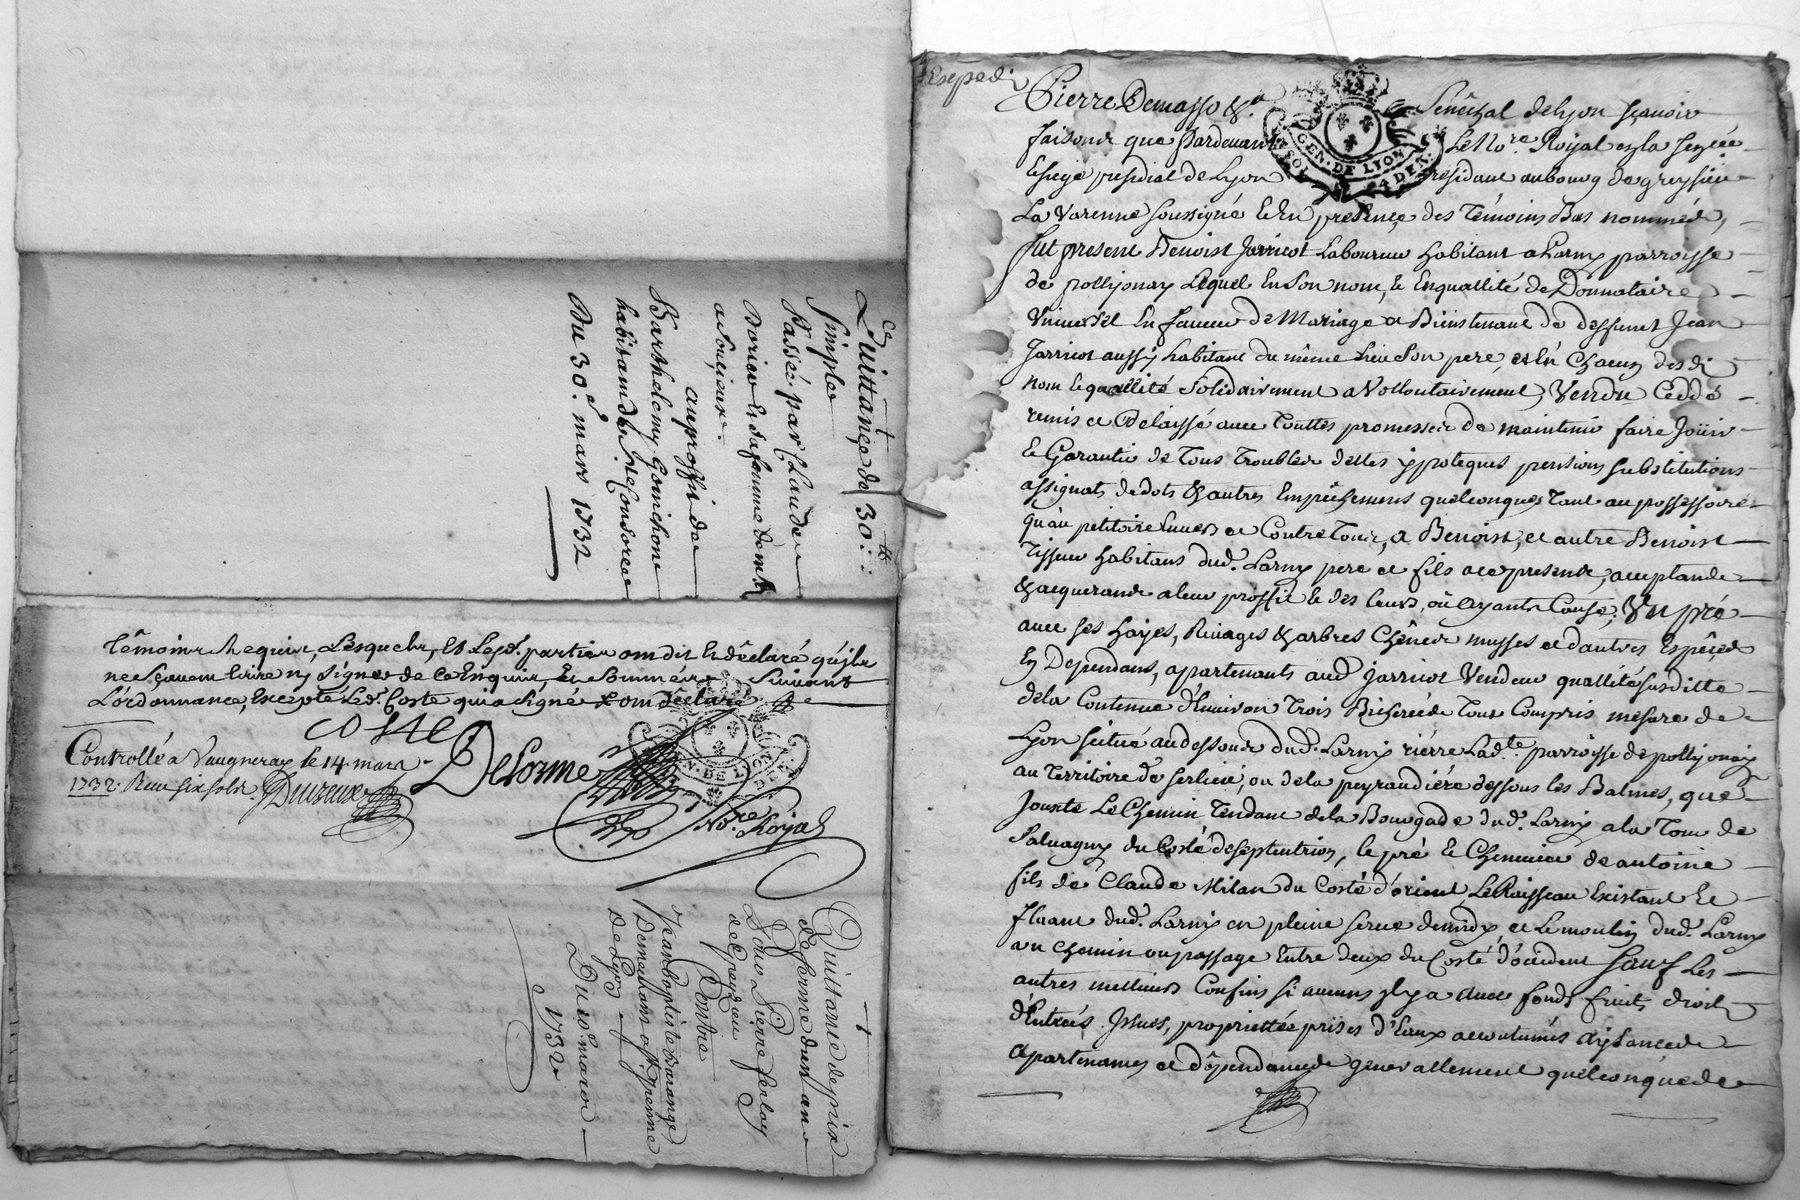 Quittance de 30.tt
simple
Passée par Claude
Dorieu & sa femme de mt
a Soucieu
au proffit de
Barthelemy Gonichon
habitand de
Du 30e. mars 1732
Témoins Requis, Lesquels, & Lesd. parties ont dit & déclaré qu'ils
ne sçavent Ecrire ny signer de ce Enquis, Et sommés Suivant
L'ordonnance, Excepté Led. Coste qui a signé
COSTE
Controllé a Vaugneray le 14. mars
1732. Reçu six sols
Delorme
Nore. Royal
GEN. DE LYON
Quittance de prix
de ferme d'un an
Pierre ferlay
de Grezieu
Contre
Jean baptiste
Demeurant
de Lyon
Du 10e mars
1732
Pierre Demasso &a. Sénéchal de Lyon sçavoir
faisons que Pardevant Le Nore. Royal en la senéé
& siege presidial de Lyon residant au bourg de greysieu
La Varenne soussigné & En presence des Témoins Bas nommés,
fut present Benoist Jarricot Laboureur habitant a Larny parroisse
de pollyonay Lequel En son nom, & En quallité de Donnataire
Universel En faveur de Mariage a Biens tenant de deffunt Jean
Jarricot aussy habitant du même lieu son pere, et En Chacun desdi
nom & quallité Solidairement a Vollontairement, Vendu Ceddé
remis et Delaissé avec Touttes promesses de maintenir faire Joüir
& Garantir de Tous Troubles dettes ypoteques pensions substitutions
assignats de dots & autres Empêchemens quelconques Tant au possessoire
qu'au petitoire Envers et Contre Tous, a Benoist, et autre Benoist
Tisseur habitans dud. Larny pere et fils a ce presents, acceptands
& acquerands a leur proffit & des leurs, ou Ayants Cause; Un pré
avec ses hayes, Rivages & arbres Chênes mysses et d'autres Espêces
En Dependans, apartenants aud Jarricot Vendeur quallité susditte
de la Contenue d'Environ Trois Bicherées de Tout Compris mesure de
Lyon scitué au dessous dud. Larny riérre Ladte. parroisse de pollyonay
au Territoire de serlieu, ou de la peyraudiére dessous les Balmes, que
Jouxte Le Chemin Tendant de la Bourgade dud. Larny a la Tour de
Salvagny du Costé de septentrion, le pré & Cheneviere de antoine
fils de Claude Milan du Costé d'orient Le Ruisseau Existant &
fluant dud. Larny en pleine serve et Le moulin dud. Larny
un Chemin ou passage Entre deux du Costé d'occident Sauf Les
autres meilleurs Confins si aucuns y a avec fonds fruits droits
d'Entrées Issues, proprietés prises d'Eaux accoutumés aysances
apartenances et dépendances generallement quelconques de